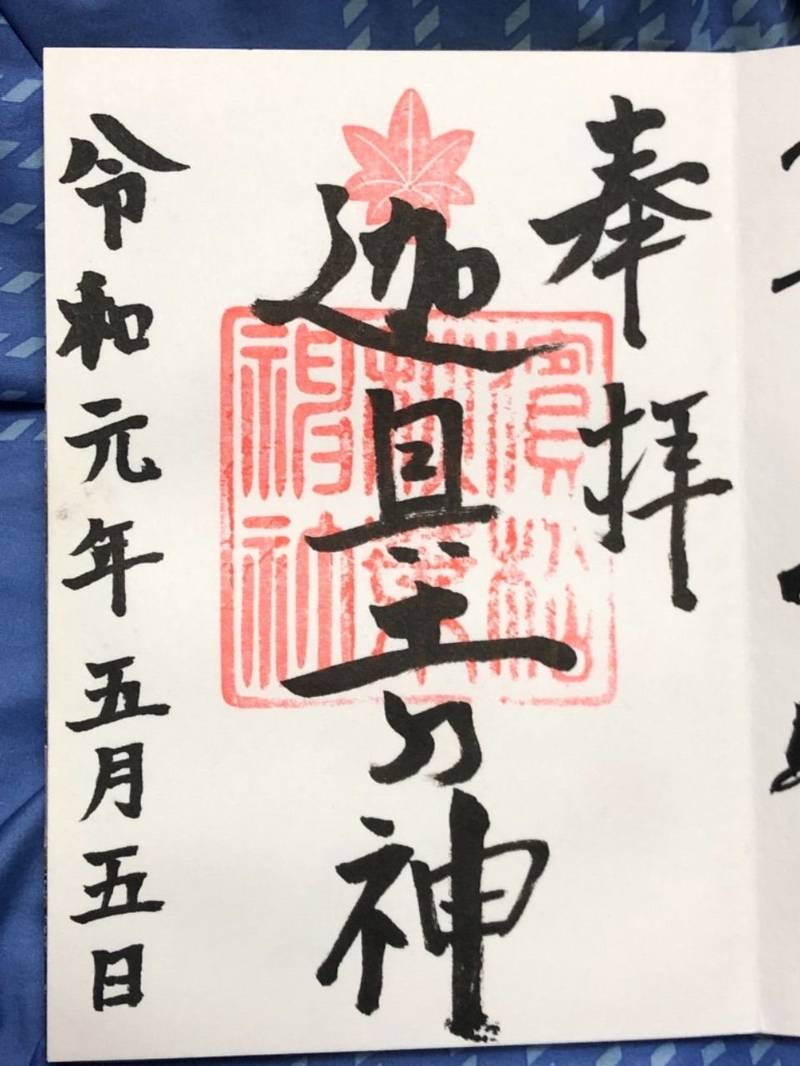 奉拝
迦具土乃神
濱松
秋葉
神社
令和元年五月五日